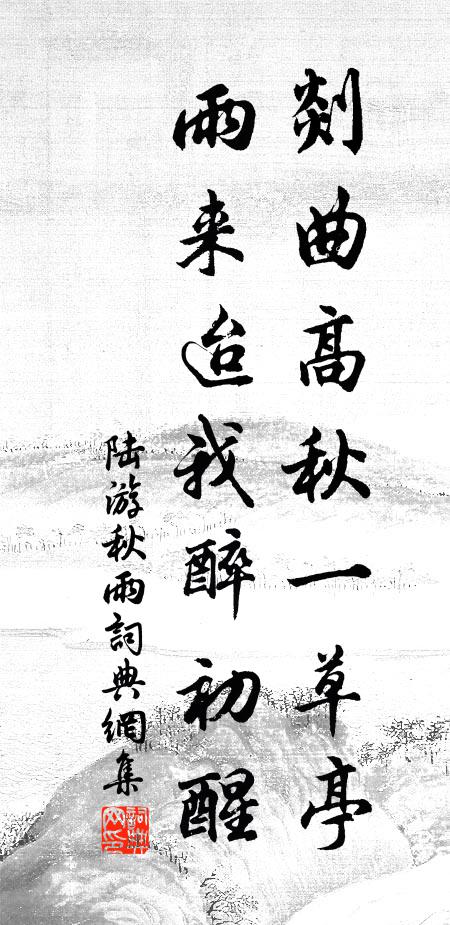 剡曲高秋一草亭
雨来迨我醉初醒
陆游秋雨詞典網集